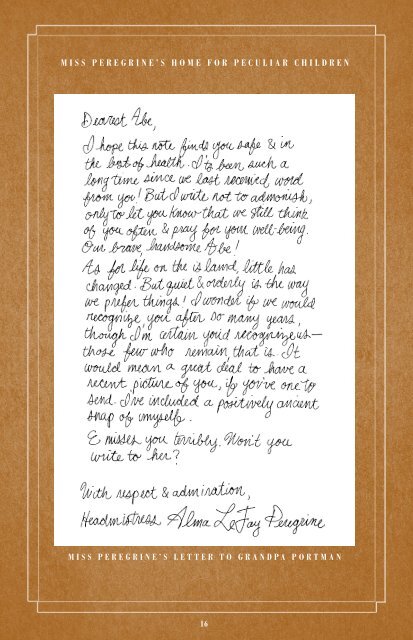 MISS PEREGRINE'S HOME FOR PECULIAR CHILDREN
Dearest Abe,
I hope this note finds you safe & in
the best of health. It's been such a
long time since we last received word
from you! But I write not to admonish,
only to let you know that we still think
of you often & pray for your well-being.
Our brave, handsome Abe!
As for life on the island, little has
changed. But quiet & orderly is the way
we prefer things! I wonder if we would
recognize you after so many years,
though I'm certain you'd recognize us—
those few who remain, that is. It
would mean a great deal to have a
recent picture of you, if you've one to
send. I've included a positively ancient
snap of myself.
E misses you terribly. Won't you
write to her?
With respect & admiration,
Headmistress Alma LeFay Peregrine
MISS PEREGRINE'S LETTER TO GRANDPA PORTMAN
16